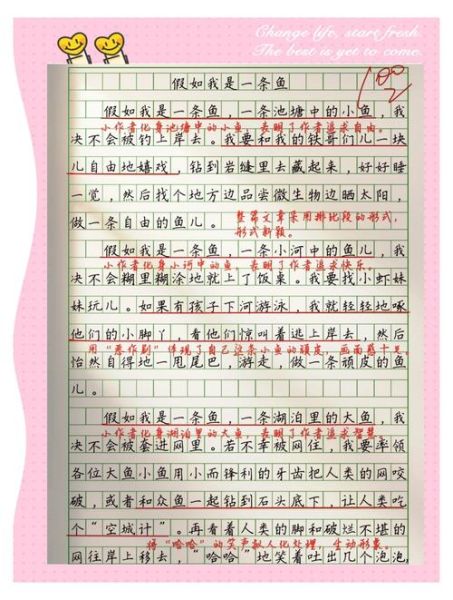 Change life, start fresh.
The best is yet to come.
100
假如我是一条鱼
假如我是一条鱼，一条池塘中的小鱼，我
小作者化身池塘中的小鱼，表明了作者追求自由。
决不会被钓上岸去。我要和我的铁哥们儿一块
儿自由地嬉戏，钻到岩缝里去藏起来，好好睡
一觉，然后找个地方边品尝微生物边晒太阳，
做一条自由的鱼儿。
整篇文章采用排比段的形式，
形式新颖。
假如我是一条鱼，一条小河中的鱼儿，我
小作者化身小河中的鱼，表明了作者追求快乐。
决不会糊里糊涂地就上了饭桌。我要找小虾妹
妹玩儿。如果有孩子下河游泳，我就轻轻地啄
他们的小脚丫，看他们惊叫着逃上岸去，然后
用“恶作剧”体现了自己这条小鱼的顽皮，画面感十足。
怡然自得地一甩尾巴，游走，做一条顽皮的鱼
儿。
假如我是一条鱼，一条湖泊里的大鱼，我
小作者化身湖泊里的大鱼，表明了作者追求智慧。
决不会被套进网里。若不幸被网住，我要率领
各位大鱼小鱼用小而锋利的牙齿把人类的网咬
破，或者和众鱼一起钻到石头底下，让人类吃
个“空城计”。再看着人类的脚和破烂不堪的
将“哈哈”的笑声拟人化处理，生动形象。
网往岸上移去，“哈哈”地笑着吐出几个泡泡，